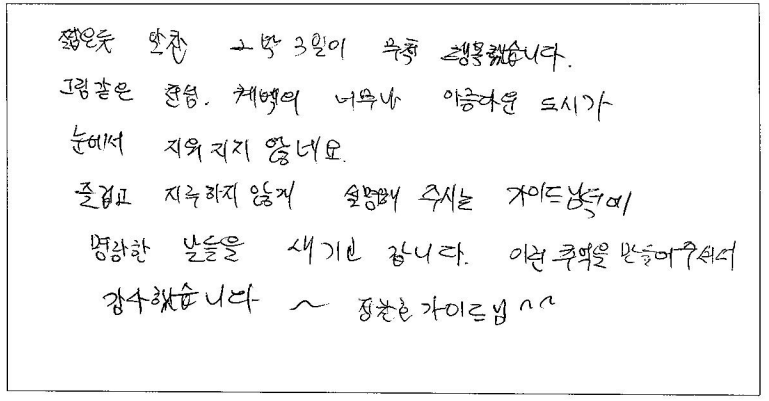 짧은듯 알찬 2박 3일이 무척 행복했습니다.
그림같은 운섬, 체벽의 너무나 아름다운 도시가
눈에서 지워지지 않네요.
즐겁고 지루하지 않게 설명해 주시는 가이드님덕에
명랑한 날들을 새기고 갑니다. 이런 추억을 만들어주셔서
감사했습니다 ~ 가이드님 ^^